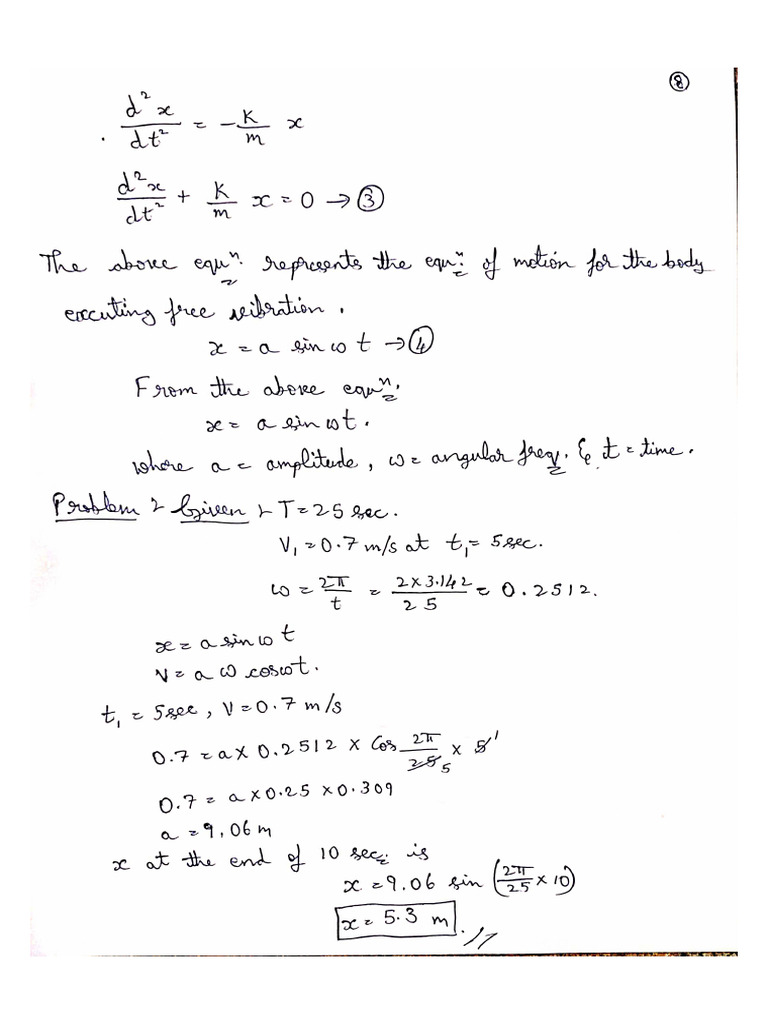 ⑧
d²x/dt² = -K/m x
d²x/dt² + K/m x = 0 → ③
The above equⁿ. represents the equⁿ. of motion for the body
executing free vibration.
x = a sin ω t → ④
From the above equⁿ.
x = a sin ωt.
where a = amplitude, ω = angular freq. & t = time.
Problem : Given : T = 25 sec.
V₁ = 0.7 m/s at t₁ = 5 sec.
ω = 2π/t = 2 × 3.142/25 = 0.2512.
x = a sin ω t
V = a ω cos ωt.
t₁ = 5 sec, V = 0.7 m/s
0.7 = a × 0.2512 × Cos 2π/25 5 × 5 1
0.7 = a × 0.25 × 0.309
a = 9.06 m
x at the end of 10 sec. is
x = 9.06 sin (2π/25 × 10)
x = 5.3 m.